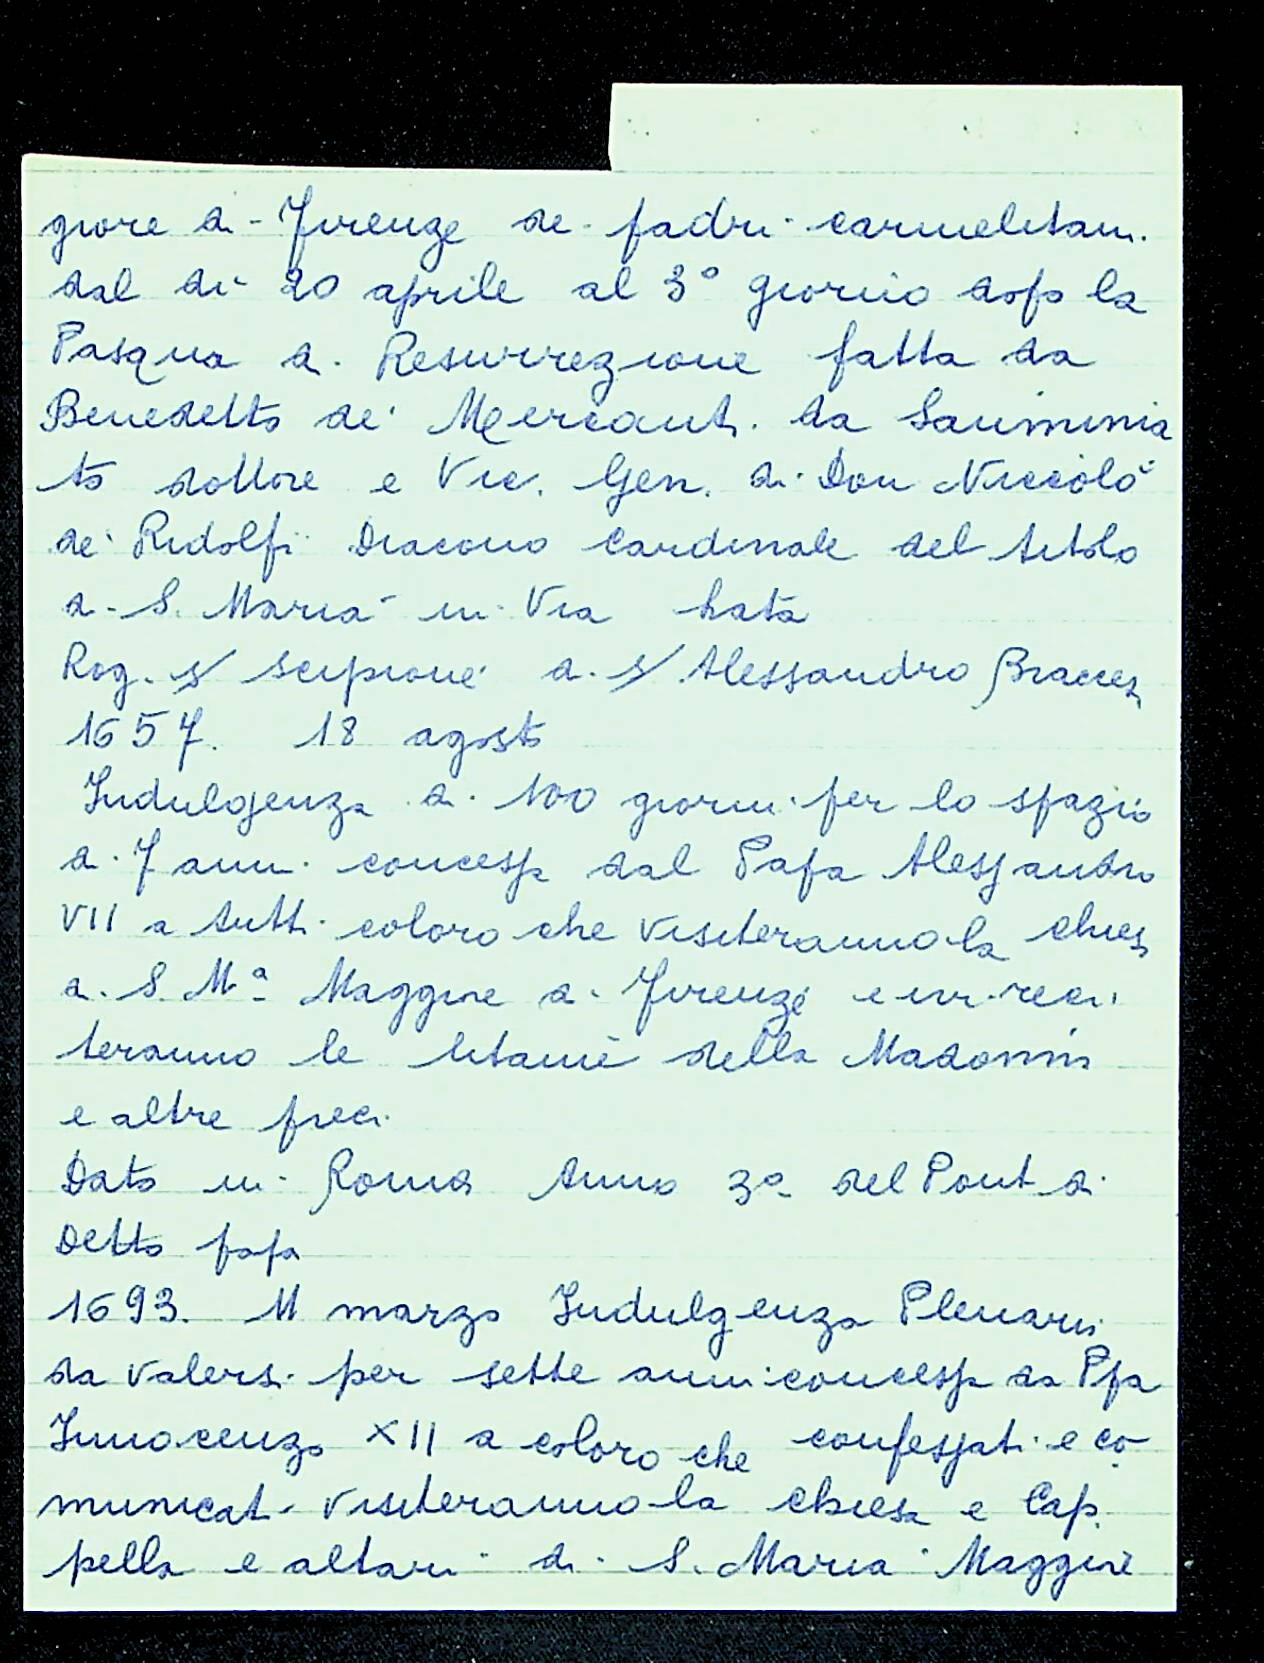 giore di Firenze de padri carmelitani
dal dì 20 aprile al 3° giorno dopo la
Pasqua di Resurrezione fatta da
Benedetto de' Mercanti da Sanminia
to dottore e Vic. Gen. di Don Niccolò
de' Ridolfi Diacono Cardinale del titolo
di S. Maria in Via Lata
Rog. s/ Scipione di s/ Alessandro Braccesi
1657. 18 agosto
Indulgenza di 100 giorni per lo spazio
di 7 anni concessa dal Papa Alessandro
VII a tutti coloro che visiteranno la chiesa
di S. Mª Maggiore di Firenze e ivi reci
teranno le litanie della Madonna
e altre preci
Dato in Roma Anno 3º del Pont di
Detto papa
1693. 11 marzo Indulgenza Plenaria
da valersi per sette anni concessa da Ppa
Innocenzo XII a coloro che confessati e co
municati visiteranno la chiesa e Cap
pella e altari di S. Maria Maggiore